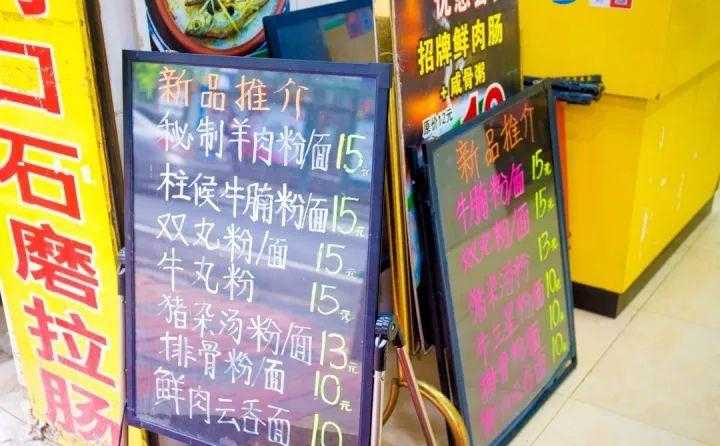 口石磨拉肠
新品推介
秘制羊肉粉/面 15元
柱候牛腩粉/面 15元
双丸粉/面 15元
牛丸粉 15元
猪杂汤粉/面 13元
排骨粉/面 10元
鲜肉云吞面 10
招牌鲜肉肠
+咸骨粥
原价12元
新品推介
牛腩粉/面 15元
双丸粉/面 15元
猪杂汤粉 13元
牛三星粉/面 10元
排骨粉/面 10元